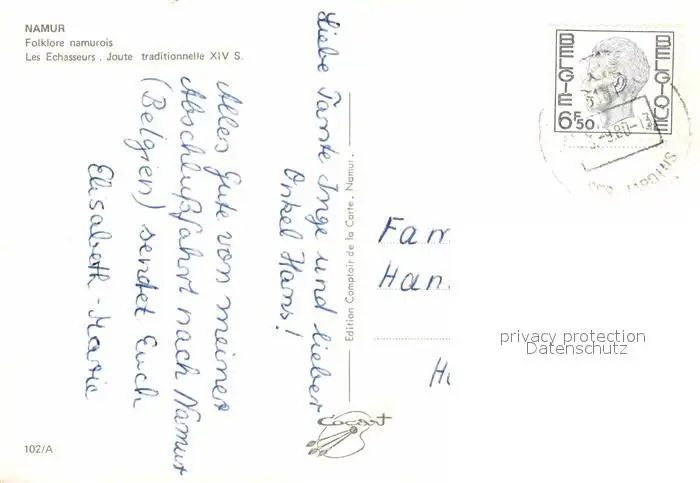 NAMUR
Folklore namurois
Les Echasseurs. Joute traditionnelle XIV S.
Liebe Tante Inge und lieber
Onkel Hans!
Alles Gute von meiner
Abschlußfahrt nach Namur
(Belgien) sendet Euch
Elisabeth-Marie
102/A
Edition Comptoir de la Carte, Namur.
Cocart
BELGIE BELGIQUE
6F50
-9.80-13
Fam
Han.
H
privacy protection
Datenschutz